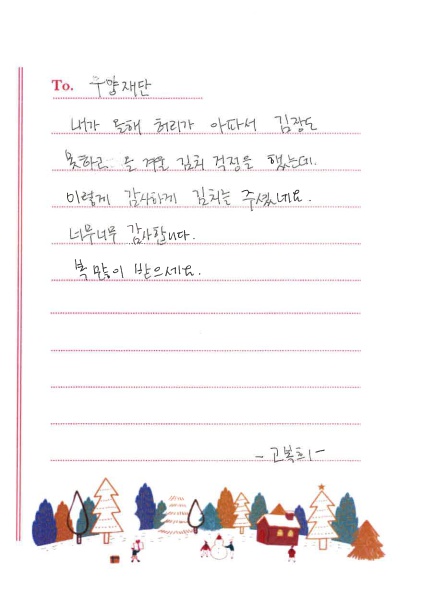 To. 우양재단
내가 올해 허리가 아파서 김장도
못하고 올 겨울 김치 걱정을 했는데.
이렇게 감사하게 김치를 주셨네요.
너무너무 감사합니다.
복 많이 받으세요.
- 고복희 -